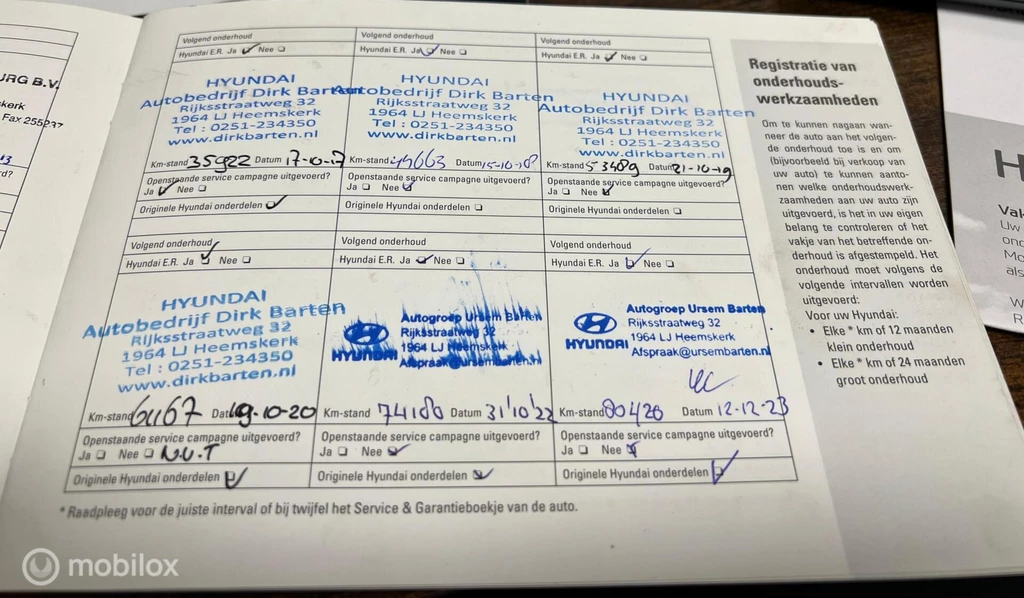 JRG B.V.
skerk
Fax 255237
Volgend onderhoud
Hyundai E.R. Ja Nee
HYUNDAI
Autobedrijf Dirk Barten
Rijksstraatweg 32
1964 LJ Heemskerk
Tel : 0251-234350
www.dirkbarten.nl
Km-stand 35922 Datum 17-10-17
Openstaande service campagne uitgevoerd?
Ja Nee
Originele Hyundai onderdelen
Volgend onderhoud
Hyundai E.R. Ja Nee
HYUNDAI
Autobedrijf Dirk Barten
Rijksstraatweg 32
1964 LJ Heemskerk
Tel : 0251-234350
www.dirkbarten.nl
Km-stand Datum 15-10-18
Openstaande service campagne uitgevoerd?
Ja Nee
Originele Hyundai onderdelen
Volgend onderhoud
Hyundai E.R. Ja Nee
HYUNDAI
Autobedrijf Dirk Barten
Rijksstraatweg 32
1964 LJ Heemskerk
Tel : 0251-234350
www.dirkbarten.nl
Km-stand 53489 Datum 21-10-19
Openstaande service campagne uitgevoerd?
Ja Nee
Originele Hyundai onderdelen
Volgend onderhoud
Hyundai E.R. Ja Nee
HYUNDAI
Autobedrijf Dirk Barten
Rijksstraatweg 32
1964 LJ Heemskerk
Tel : 0251-234350
www.dirkbarten.nl
Km-stand 61167 Datum 19-10-20
Openstaande service campagne uitgevoerd?
Ja Nee N.V.T
Originele Hyundai onderdelen
Volgend onderhoud
Hyundai E.R. Ja Nee
HYUNDAI
Autogroep Ursem Barten
Rijksstraatweg 32
1964 LJ Heemskerk
Afspraak@ursembarten.nl
Km-stand 74180 Datum 31/10/22
Openstaande service campagne uitgevoerd?
Ja Nee
Originele Hyundai onderdelen
Volgend onderhoud
Hyundai E.R. Ja Nee
HYUNDAI
Autogroep Ursem Barten
Rijksstraatweg 32
1964 LJ Heemskerk
Afspraak@ursembarten.nl
Km-stand 80426 Datum 12-12-23
Openstaande service campagne uitgevoerd?
Ja Nee
Originele Hyundai onderdelen
* Raadpleeg voor de juiste interval of bij twijfel het Service & Garantieboekje van de auto.
Registratie van
onderhouds-
werkzaamheden
Om te kunnen nagaan wan-
neer de auto aan het volgen-
de onderhoud toe is en om
(bijvoorbeeld bij verkoop van
uw auto) te kunnen aanto-
nen welke onderhoudswerk-
zaamheden aan uw auto zijn
uitgevoerd, is het in uw eigen
belang te controleren of het
vakje van het betreffende on-
derhoud is afgestempeld. Het
onderhoud moet volgens de
volgende intervallen worden
uitgevoerd:
Voor uw Hyundai:
• Elke * km of 12 maanden
klein onderhoud
• Elke * km of 24 maanden
groot onderhoud
H
Vak
Uw
ond
Mo
als
W
R
mobilox